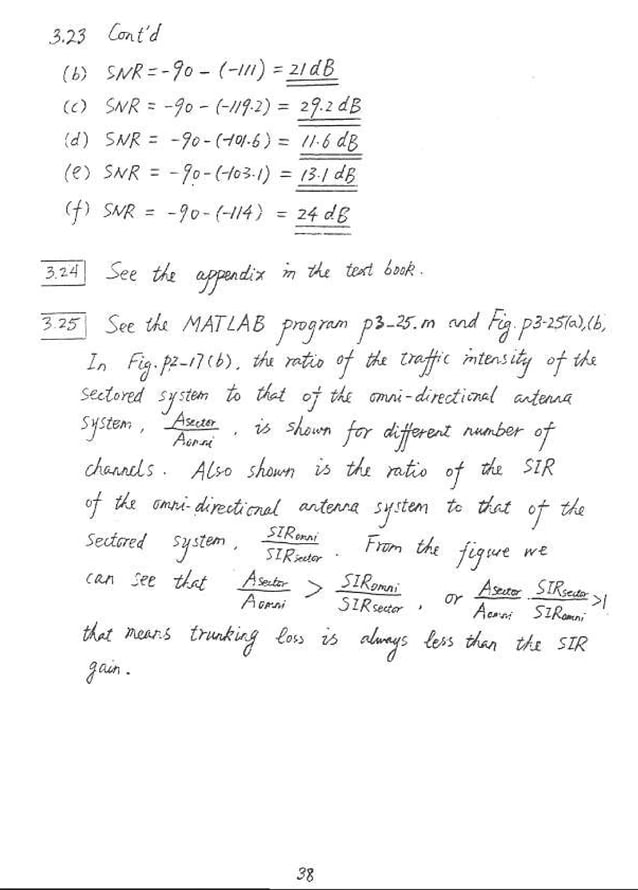 3.23 Cont'd
(b) SNR = -90 - (-111) = 21 dB
(c) SNR = -90 - (-119.2) = 29.2 dB
(d) SNR = -90 - (-101.6) = 11.6 dB
(e) SNR = -90 - (-103.1) = 13.1 dB
(f) SNR = -90 - (-114) = 24 dB
3.24 See the appendix in the text book.
3.25 See the MATLAB program p3-25.m and Fig. p3-25(a),(b,
In Fig. p2-17(b), the ratio of the traffic intensity of the
sectored system to that of the omni-directional antenna
system, Asector/Aomni, is shown for different number of
channels. Also shown is the ratio of the SIR
of the omni-directional antenna system to that of the
sectored system, SIRomni/SIRsector. From the figure we
can see that Asector/Aomni > SIRomni/SIRsector, or Asector/Aomni · SIRsector/SIRomni >1
that means trunking loss is always less than the SIR
gain.
38